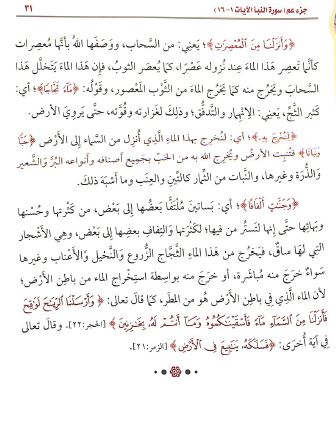 جزء عم (سورة النبأ الآيات ١-١٦) ٣١
﴿وَأَنزَلْنَا مِنَ الْمُعْصِرَٰتِ﴾؛ يَعني: من السَّحاب، ووَصَفَها اللهُ بأنَّها مُعصِرات
كأنَّما تَعصِر هذا الماءَ عند نُزوله عَصْرًا، كما يُعصَر الثوبُ، فإن هذا الماءَ يَتخلَّل هذا
السحابَ ويَخرُج منه كما يَخرُج الماءُ من الثَّوب المَعصور، وقَوْلُه: ﴿مَآءً ثَجَّاجًا﴾؛ أي:
كثيرَ الثَّجِّ، يَعني: الانهِمار والتدفُّق؛ وذلك لغَزارته وقُوَّته، حتى يَروِيَ الأرض.
﴿لِّنُخْرِجَ بِهِۦ﴾؛ أي: لنُخرِج بهذا الماءِ الَّذي أُنزِل من السَّماء إلى الأَرْض ﴿حَبًّا
وَنَبَاتًا﴾ فتُنبِت الأرضُ ويُخرِج اللهُ به من الحَبِّ بجَميع أَصنافه وأنواعه البُرِّ والشَّعير
والذُّرَة وغيرها، والنَّبات من الثِّمار كالتِّين والعِنَب وما أَشبَهَ ذلك.
﴿وَجَنَّٰتٍ أَلْفَافًا﴾؛ أي: بَساتينَ مُلتَفًّا بعضُها إلى بَعْض، من كَثرَتها وحُسْنها
وبَهائها حتَّى إنها لتَستُر مَن فيها؛ لكَثْرتها والتِفافِ بعضِها إلى بعض، وهي الأشجار
التي لها ساقٌ، فيَخرُج من هذا الماءِ الثَّجَّاجِ الزُّروع والنَّخيل والأَعناب وغيرها
سَواءٌ خرَجَ منه مُباشَرة، أو خرَجَ منه بواسِطة استِخْراج الماء من باطِن الأرض؛
لأن الماء الَّذي في باطِن الأَرْض هُو من المَطَر، كما قال تعالى: ﴿وَأَرْسَلْنَا الرِّيَٰحَ لَوَٰقِحَ
فَأَنزَلْنَا مِنَ السَّمَآءِ مَآءً فَأَسْقَيْنَٰكُمُوهُ وَمَآ أَنتُمْ لَهُۥ بِخَٰزِنِينَ﴾ [الحجر:٢٢]، وقال تعالى
في آيَة أُخرَى: ﴿فَسَلَكَهُۥ يَنَٰبِيعَ فِى الْأَرْضِ﴾ [الزمر:٢١].